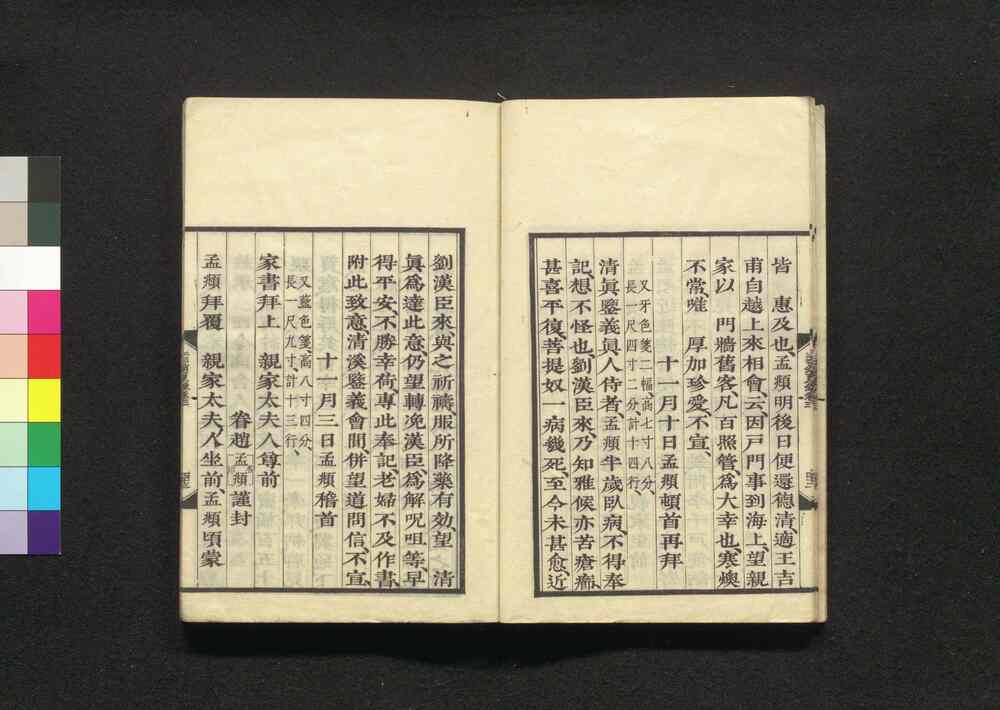 皆　惠及也、孟頫明後日便還德清、適王吉
甫自越上來相會、云、因戸門事到海上、望親
家以　門牆舊客、凡百照管、爲大幸也、寒燠
不常、唯　厚加珍愛、不宣、
十一月十日孟頫頓首再拜
又牙色箋二幅、高七寸八分、
長一尺四寸二分、計十四行、
清眞鑒義眞人侍者、孟頫半歲臥病、不得奉
記、想不怪也、劉漢臣來、乃知雅候亦苦瘡癤、
甚喜平復、菩提奴一病幾死、至今未甚愈、近
劉漢臣來、與之祈禱、服所降藥有効、望　清
眞爲達此意、仍望轉浼漢臣、爲解呪咀等、早
得平安、不勝幸荷、專此奉記、老婦不及作書、
附此致意、清溪鑒義會間、併望道問信、不宣、
十一月三日孟頫稽首
又藍色箋高八寸四分、
長一尺九寸、計十三行、
家書拜上　親家太夫人尊前
眷趙孟頫謹封
孟頫拜覆　親家太夫人坐前孟頫頃蒙